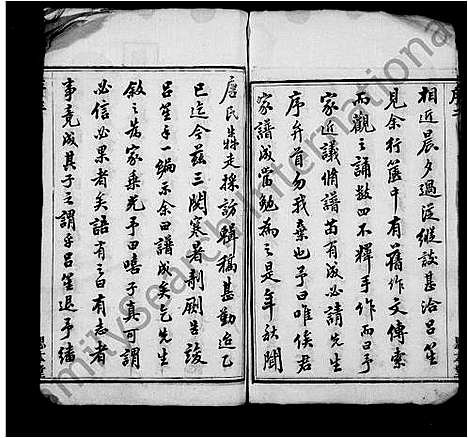 相近晨夕過從縱談甚洽呂笙
見余行篋中有舊作文傳索
而觀之誦數四不釋手作而曰予
家近議脩譜苟有成必請先生
序弁首勿我棄也予曰唯俟君
家譜成當勉為之是年秋聞
唐民犇走採訪輯稿甚勤迄乙
巳迄今茲三閱寒暑剞劂告竣
呂笙手一編示余曰譜成矣乞先生
敘之為家乘光予曰嘻子真可謂
必信必果者矣語有之曰有志者
事竟成其子之謂乎呂笙退予繙
FamilySearch International